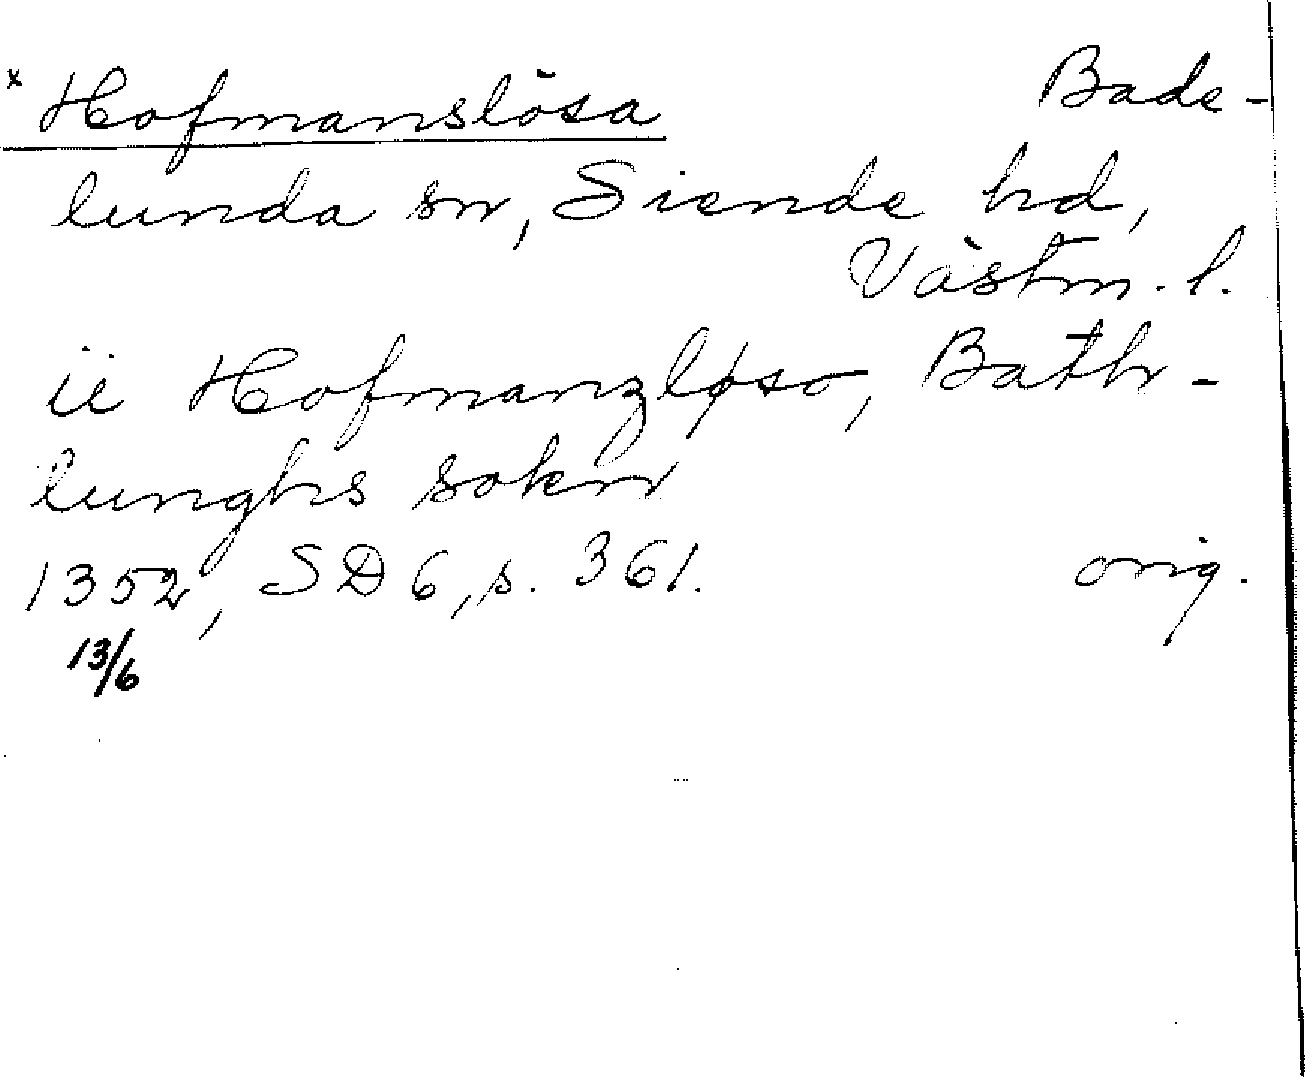 x Hofmanslösa Bade-
lunda sn, Siende hd,
Västm. l.
ii Hofmanzløso, Bath-
lunghs sokn
1352, SD 6, s. 361. orig.
13/6